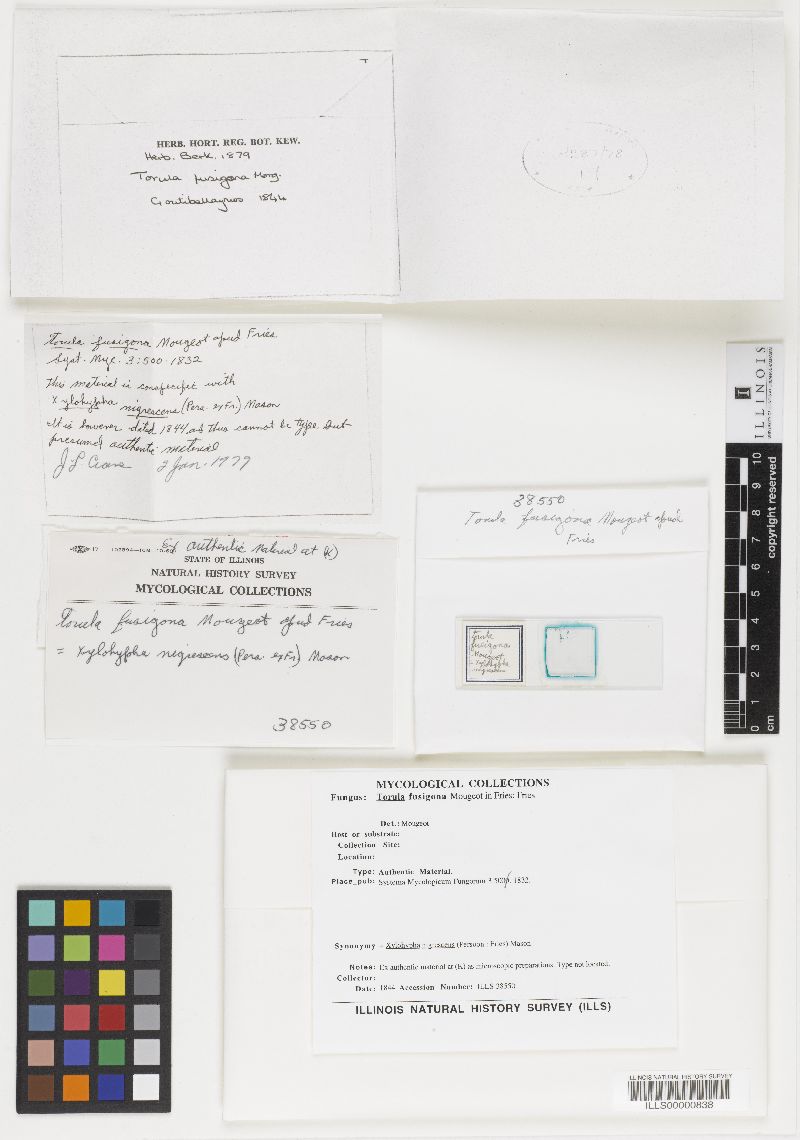 HERB. HORT. REG. BOT. KEW.
Herb. Berk. 1879
Torula fusigona Moug.
1844
Torula fusigona Mougeot apud Fries
Syst. Myc. 3:500. 1832
This material is conspecific with
Xylohypha nigrescens (Pers. ex Fr.) Mason
It is however dated 1844 and thus cannot be type but
presumed authentic material
J L Crane 2 Jan. 1979
Ex authentic material at (K)
STATE OF ILLINOIS
NATURAL HISTORY SURVEY
MYCOLOGICAL COLLECTIONS
Torula fusigona Mougeot apud Fries
= Xylohypha nigrescens (Pers. ex Fr.) Mason
38550
38550
Torula fusigona Mougeot apud
Fries
Torula
fusigona
Mougeot
= Xylohypha
nigrescens
ILLINOIS
0 1 2 3 4 5 6 7 8 9 10
cm
copyright reserved
MYCOLOGICAL COLLECTIONS
Fungus: Torula fusigona Mougeot in Fries: Fries
Det.: Mougeot
Host or substrate:
Collection Site:
Location:
Type: Authentic Material.
Place_pub: Systema Mycologicum Fungorum 3:500. 1832.
Synonymy = Xylohypha nigrescens (Persoon : Fries) Mason
Notes: Ex authentic material at (K) as microscopic preparations. Type not located.
Collector:
Date: 1844 Accession Number: ILLS 38550
ILLINOIS NATURAL HISTORY SURVEY (ILLS)
ILLINOIS NATURAL HISTORY SURVEY
ILLS00000838